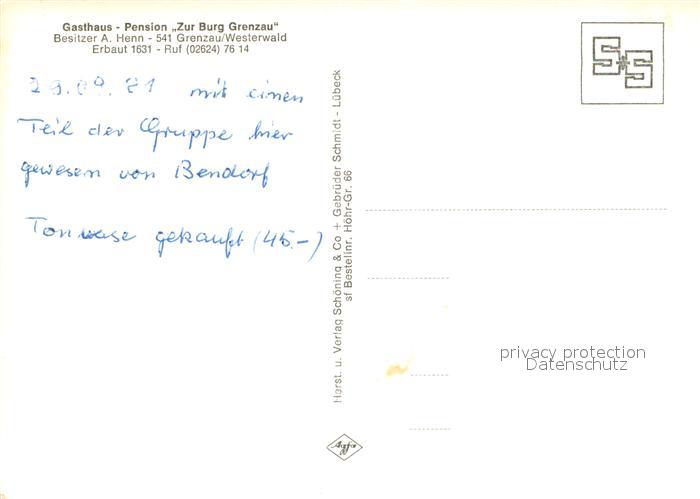 Gasthaus - Pension „Zur Burg Grenzau“
Besitzer A. Henn - 541 Grenzau/Westerwald
Erbaut 1631 - Ruf (02624) 76 14
29.09.81 mit einen
Teil der Gruppe hier
gewesen von Bendorf
Tonvase gekauft (45.-)
Herst. u. Verlag Schöning & Co + Gebrüder Schmidt - Lübeck
sf Bestellnr. Höhr-Gr. 66
S+S
privacy protection
Datenschutz
Agfa